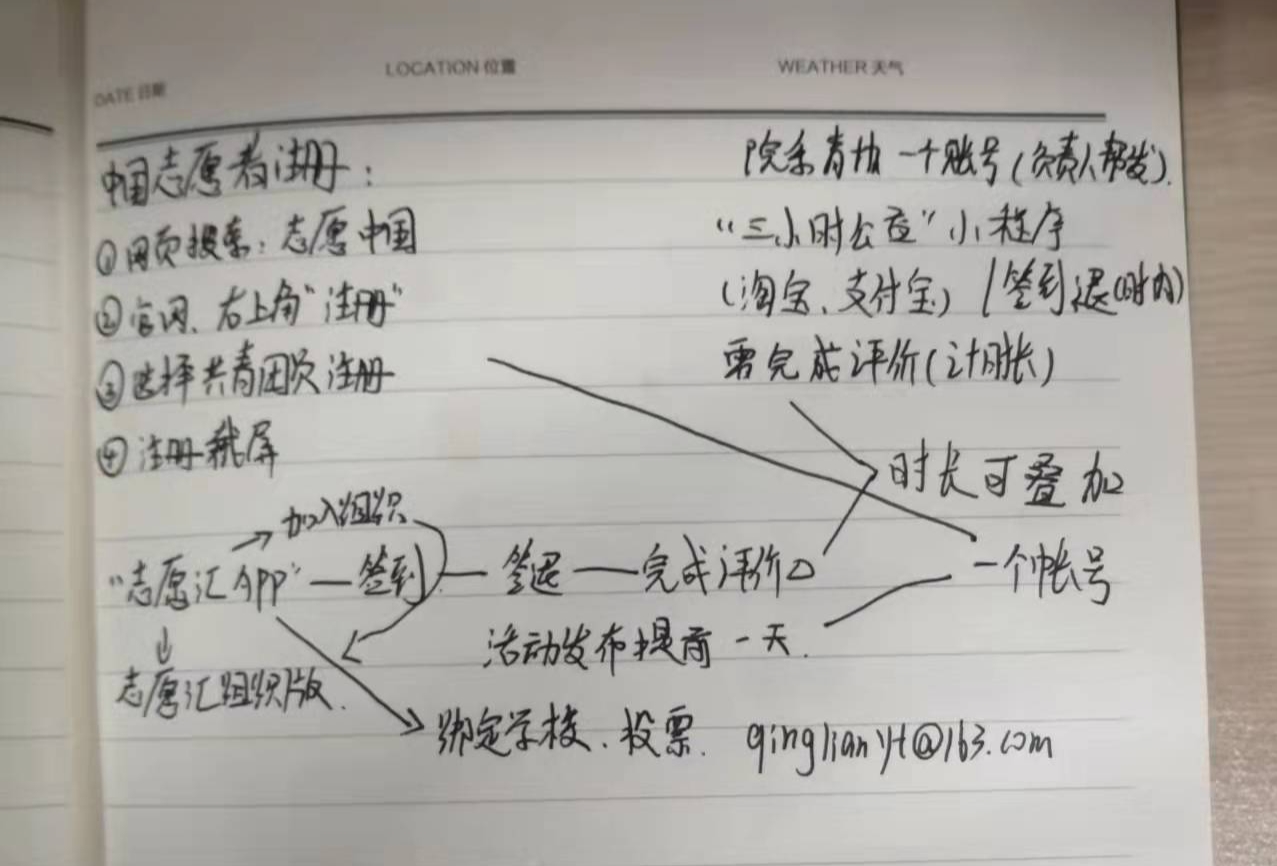 DATE 日期
LOCATION 位置
WEATHER 天气
中国志愿者注册：
①网页搜索：志愿中国
②官网、右上角"注册"
③选择共青团员注册
④注册截屏
院系青协一个账号(负责人帮发).
"三小时公益"小程序
(淘宝、支付宝) 签到退(时内)
需完成评价(计时长)
时长可叠加
加入组织
"志愿汇APP"—签到—签退—完成评价
一个帐号
活动发布提前一天.
志愿汇组织版.
绑定学校、投票. qinglianyt@163.com